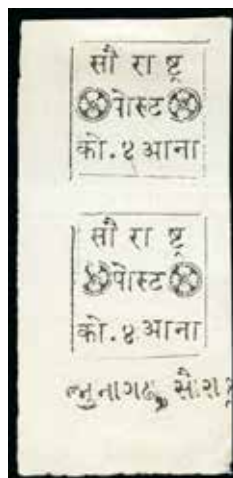 सौ रा ष्ट्र
पोस्ट
को. ४ आना
सौ रा ष्ट्र
पोस्ट
को. ४ आना
जुनागढ, सौरा